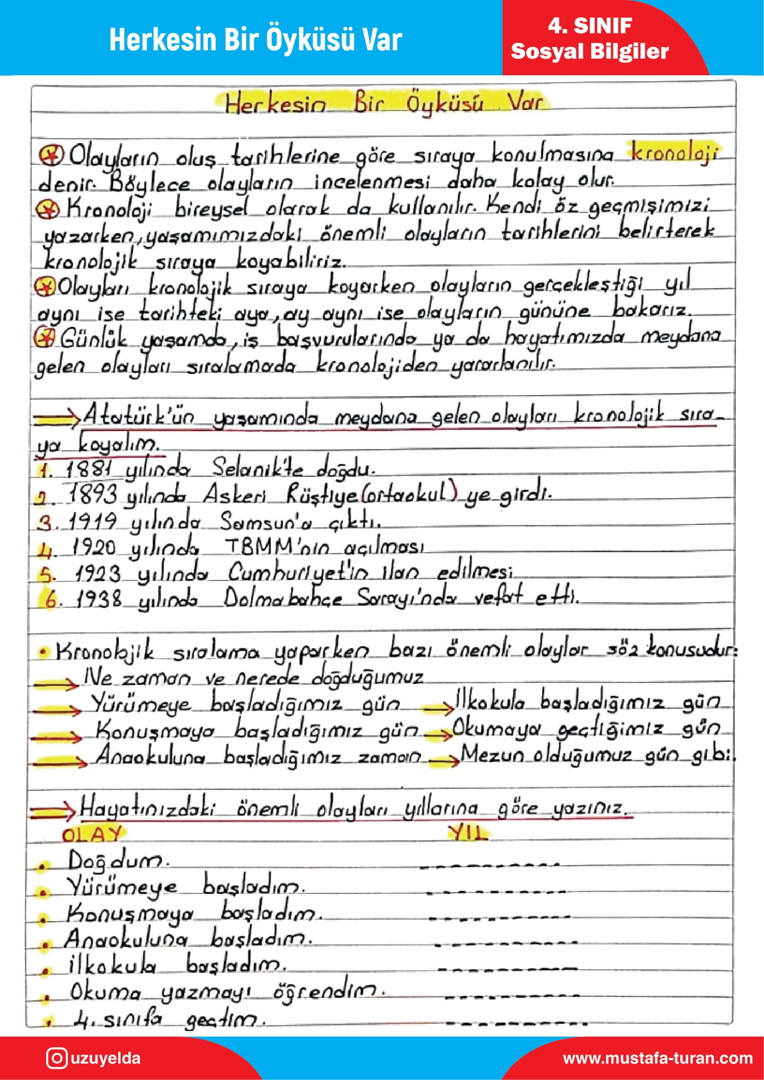 Herkesin Bir Öyküsü Var
4. SINIF
Sosyal Bilgiler
Herkesin Bir Öyküsü Var
Olayların oluş tarihlerine göre sıraya konulmasına kronoloji
denir. Böylece olayların incelenmesi daha kolay olur.
Kronoloji bireysel olarak da kullanılır. Kendi öz geçmişimizi
yazarken, yaşamımızdaki önemli olayların tarihlerini belirterek
kronolojik sıraya koyabiliriz.
Olayları kronolojik sıraya koyarken olayların gerçekleştiği yıl
aynı ise tarihteki aya, ay aynı ise olayların gününe bakarız.
Günlük yaşamda, iş başvurularında ya da hayatımızda meydana
gelen olayları sıralamada kronolojiden yararlanılır.
Atatürk'ün yaşamında meydana gelen olayları kronolojik sıra-
ya koyalım.
1. 1881 yılında Selanik'te doğdu.
2. 1893 yılında Askeri Rüştiye(ortaokul)ye girdi.
3. 1919 yılında Samsun'a çıktı.
4. 1920 yılında TBMM'nin açılması
5. 1923 yılında Cumhuriyet'in ilan edilmesi
6. 1938 yılında Dolmabahçe Sarayı'nda vefat etti.
• Kronolojik sıralama yaparken bazı önemli olaylar söz konusudur:
Ne zaman ve nerede doğduğumuz
Yürümeye başladığımız gün → İlkokula başladığımız gün
Konuşmaya başladığımız gün → Okumaya geçtiğimiz gün
Anaokuluna başladığımız zaman → Mezun olduğumuz gün gibi.
Hayatınızdaki önemli olayları yıllarına göre yazınız.
OLAY YIL
• Doğdum. ----------
• Yürümeye başladım. ----------
• Konuşmaya başladım. ----------
• Anaokuluna başladım. ----------
• ilkokula başladım. ----------
• Okuma yazmayı öğrendim. ----------
• 4. sınıfa geçtim. ----------
uzuyelda
www.mustafa-turan.com